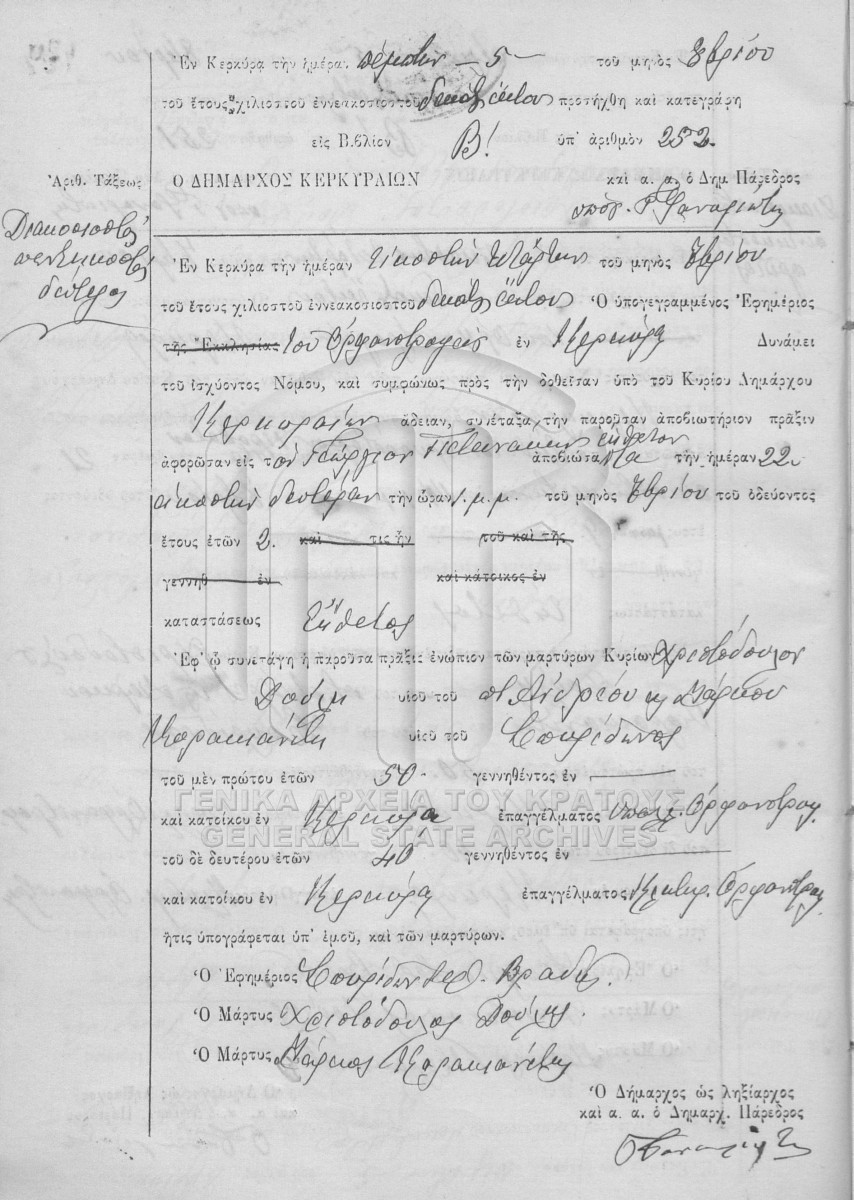 Ἐν Κερκύρᾳ τὴν ἡμέραν πέμπτην - 5 - τοῦ μηνὸς 8βρίου
τοῦ ἔτους χιλιοστοῦ ἐννεακοσιοστοῦ δεκάτου ἕκτου προσήχθη καὶ κατεγράφη
εἰς Βιβλίον Β! ὑπ' ἀριθμὸν 252.
Ἀριθ. Τάξεως
Ο ΔΗΜΑΡΧΟΣ ΚΕΡΚΥΡΑΙΩΝ καὶ α. α. ὁ Δημ Πάρεδρος
Διακοσιοστὸς
πεντηκοστὸς
δεύτερος
Ἐν Κερκύρᾳ τὴν ἡμέραν εἰκοστὴν τετάρτην τοῦ μηνὸς 7βρίου
τοῦ ἔτους χιλιοστοῦ ἐννεακοσιοστοῦ δεκάτου ἕκτου Ὁ ὑπογεγραμμένος Ἐφημέριος
τῆς Ἐκκλησίας τοῦ Ὀρφανοτροφείου ἐν Κερκύρᾳ Δυνάμει
τοῦ ἰσχύοντος Νόμου, καὶ συμφώνως πρὸς τὴν δοθεῖσαν ὑπὸ τοῦ Κυρίου Δημάρχου
Κερκυραίων ἄδειαν, συνέταξα τὴν παροῦσαν ἀποβιωτήριον πρᾶξιν
ἀφορῶσαν εἰς τὸν Γεώργιον ἔκθετον ἀποβιώσαντα τὴν ἡμέραν 22
εἰκοστὴν δευτέραν τὴν ὥραν 1 μ.μ. τοῦ μηνὸς 7βρίου τοῦ ὁδεύοντος
ἔτους ἐτῶν 2. καὶ τις ἦν τοῦ καὶ τῆς
γεννηθ ἐν καὶ κάτοικος ἐν
καταστάσεως ἔκθετος
Ἐφ' ᾧ συνετάγη ἡ παροῦσα πρᾶξις ἐνώπιον τῶν μαρτύρων Κυρίων Χριστόδουλον
υἱοῦ τοῦ π Ἀνδρέου κ Μάρκου
Κορακιανίτη υἱοῦ τοῦ Σπυρίδωνος
τοῦ μὲν πρώτου ἐτῶν 50 γεννηθέντος ἐν
ΓΕΝΙΚΑ ΑΡΧΕΙΑ ΤΟΥ ΚΡΑΤΟΥΣ
καὶ κατοίκου ἐν Κερκύρᾳ ἐπαγγέλματος ὑπαλ. Ὀρφανοτροφ.
GENERAL STATE ARCHIVES
τοῦ δὲ δευτέρου ἐτῶν 40 γεννηθέντος ἐν
καὶ κατοίκου ἐν Κερκύρᾳ ἐπαγγέλματος Ὀρφανοτροφ.
ἥτις ὑπογράφεται ὑπ' ἐμοῦ, καὶ τῶν μαρτύρων.
Ὁ Ἐφημέριος Σπυρίδων
Ὁ Μάρτυς Χριστόδουλος
Ὁ Μάρτυς Μάρκος Κορακιανίτης
Ὁ Δήμαρχος ὡς ληξίαρχος
καὶ α. α. ὁ Δημαρχ. Πάρεδρος